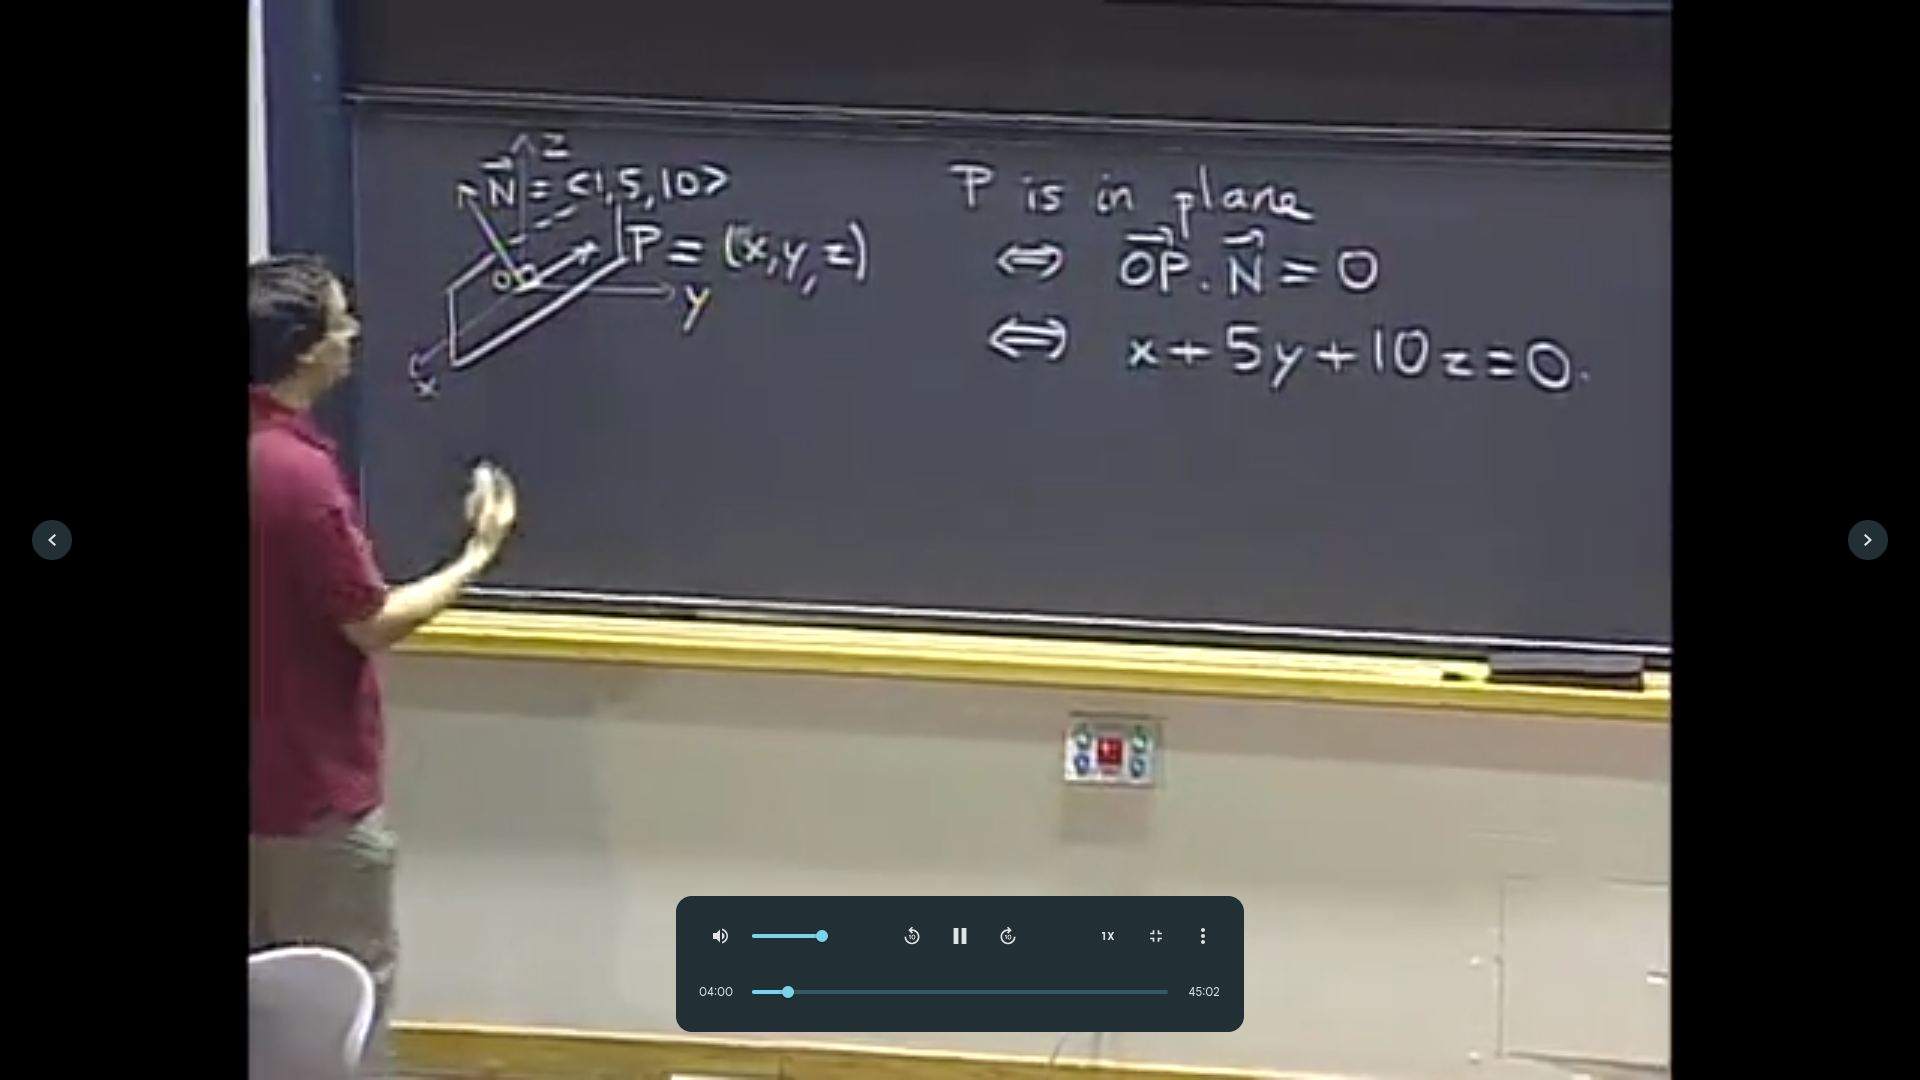 z
N⃗ = <1,5,10>
P = (x,y,z)
O
y
x
P is in plane
⇔ O⃗P⃗ . N⃗ = 0
⇔ x + 5y + 10z = 0.
10
10
1X
04:00
45:02